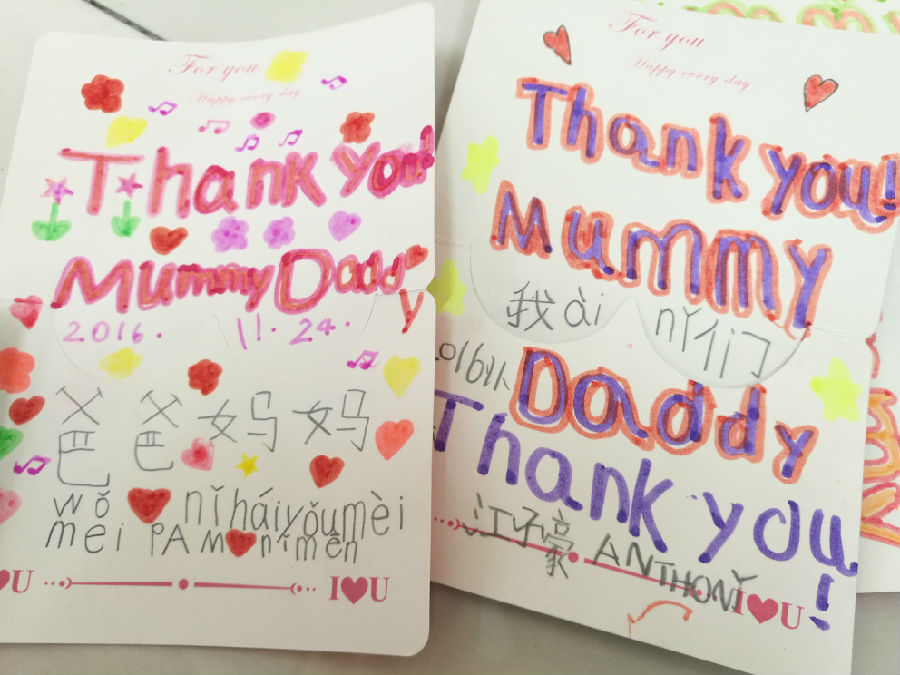 For you
Happy every day
Thank you!
Mummy Daddy
2016. 11. 24.
爸爸妈妈
wǒ nǐháiyǒumèi
mèi PA Mā nǐmén
U I♥U
For you
Happy every day
Thank you!
Mummy
我ài nǐ们
Daddy
Thank you!
江子豪 ANTHONY
I♥U